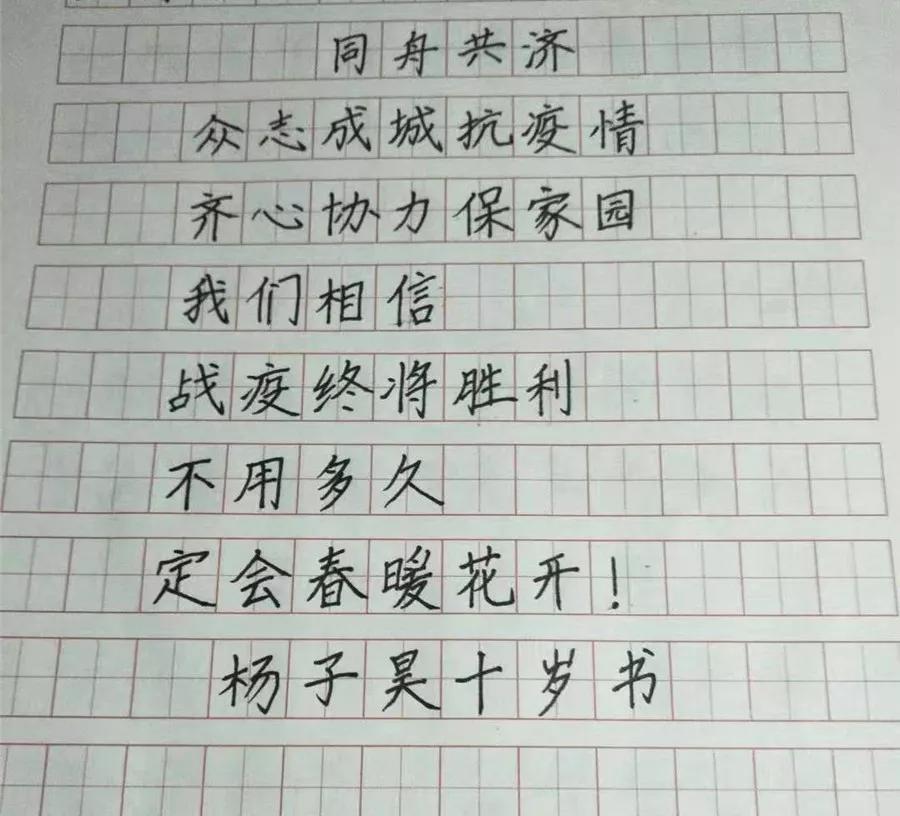 同舟共济
众志成城抗疫情
齐心协力保家园
我们相信
战疫终将胜利
不用多久
定会春暖花开！
杨子昊十岁书